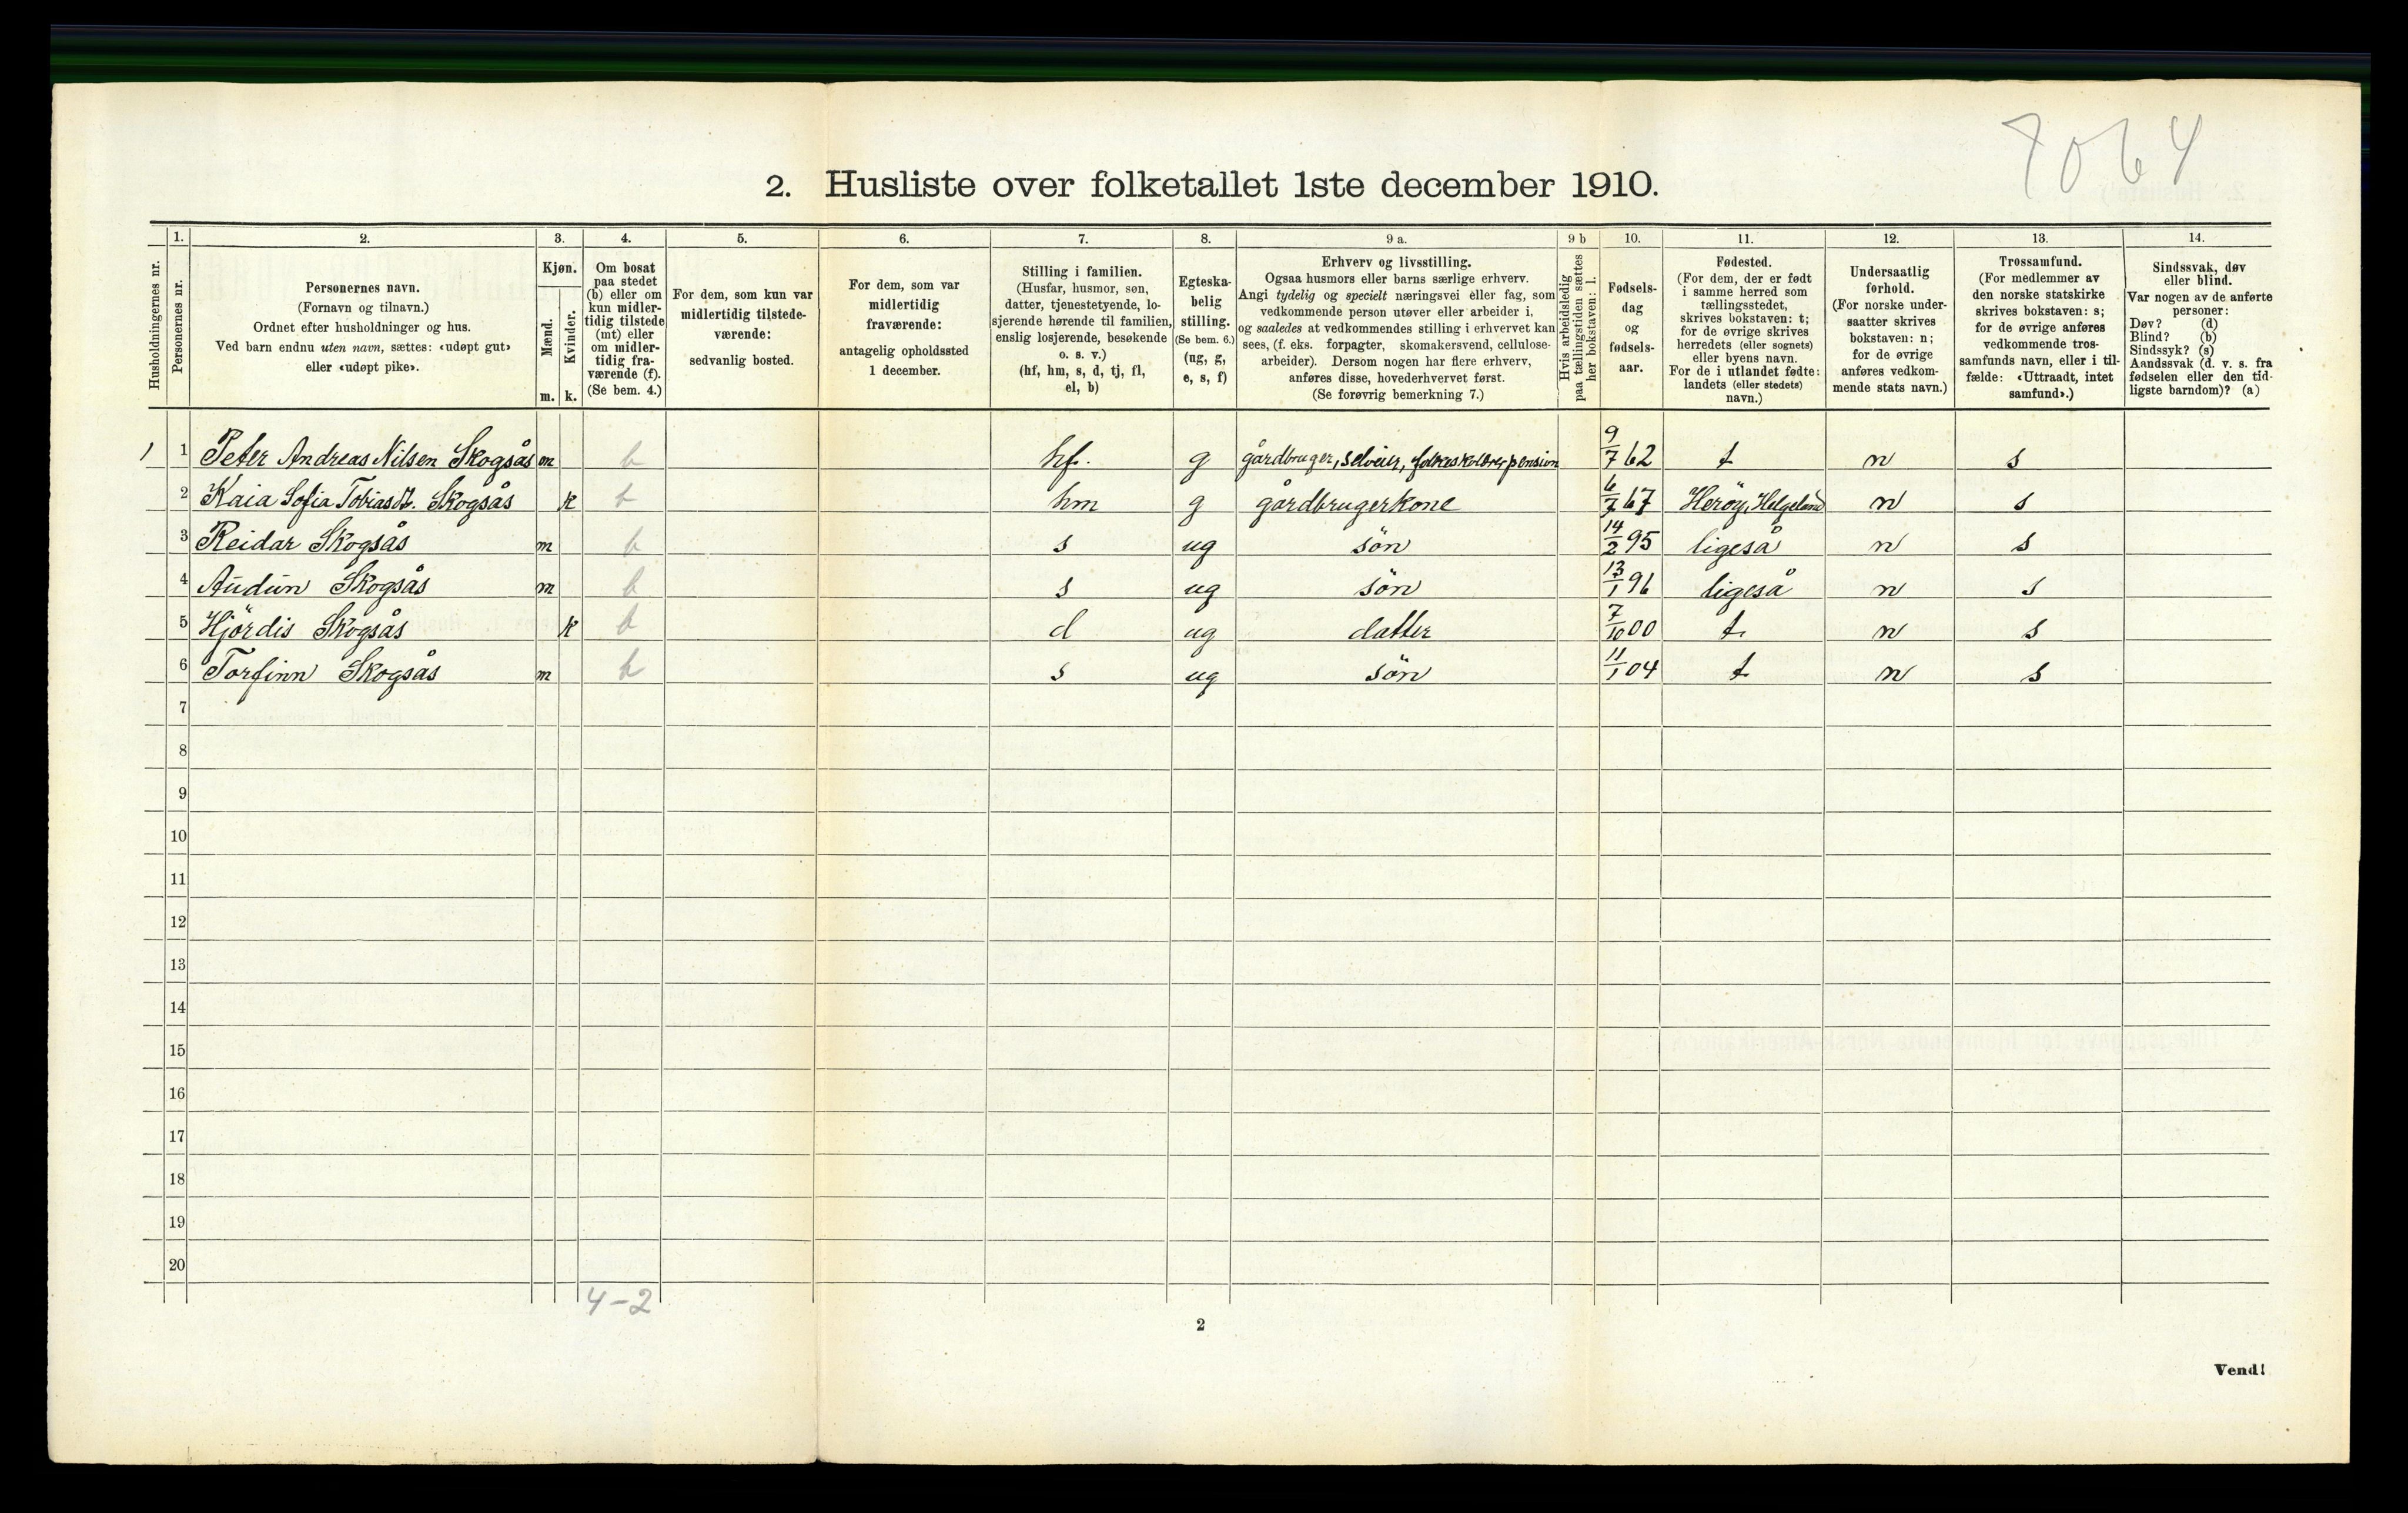 7064
2. Husliste over folketallet 1ste december 1910.
Husholdningernes nr.
1.
Personernes nr.
2.
Personernes navn.
(Fornavn og tilnavn.)
Ordnet efter husholdninger og hus.
Ved barn endnu uten navn, sættes: «udøpt gut»
eller «udøpt pike».
3.
Kjøn.
Mænd.
Kvinder.
m. k.
4.
Om bosat
paa stedet
(b) eller om
kun midler-
tidig tilstede
(mt) eller
om midler-
tidig fra-
værende (f).
(Se bem. 4.)
5.
For dem, som kun var
midlertidig tilstede-
værende:
sedvanlig bosted.
6.
For dem, som var
midlertidig
fraværende:
antagelig opholdssted
1 december.
7.
Stilling i familien.
(Husfar, husmor, søn,
datter, tjenestetyende, lo-
sjerende hørende til familien,
enslig losjerende, besøkende
o. s. v.)
(hf, hm, s, d, tj, fl,
el, b)
8.
Egteska-
belig
stilling.
(Se bem. 6.)
(ug, g,
e, s, f)
9 a.
Erhverv og livsstilling.
Ogsaa husmors eller barns særlige erhverv.
Angi tydelig og specielt næringsvei eller fag, som
vedkommende person utøver eller arbeider i,
og saaledes at vedkommendes stilling i erhvervet kan
sees, (f. eks. forpagter, skomakersvend, cellulose-
arbeider). Dersom nogen har flere erhverv,
anføres disse, hovederhvervet først.
(Se forøvrig bemerkning 7.)
9 b
Hvis arbeidsledig
paa tællingstiden sættes
her bokstaven: l.
10.
Fødsels-
dag
og
fødsels-
aar.
11.
Fødested.
(For dem, der er født
i samme herred som
tællingsstedet,
skrives bokstaven: t;
for de øvrige skrives
herredets (eller sognets)
eller byens navn.
For de i utlandet fødte:
landets (eller stedets)
navn.)
12.
Undersaatlig
forhold.
(For norske under-
saatter skrives
bokstaven: n;
for de øvrige
anføres vedkom-
mende stats navn.)
13.
Trossamfund.
(For medlemmer av
den norske statskirke
skrives bokstaven: s;
for de øvrige anføres
vedkommende tros-
samfunds navn, eller i til-
fælde: «Uttraadt, intet
samfund».)
14.
Sindssvak, døv
eller blind.
Var nogen av de anførte
personer:
Døv? (d)
Blind? (b)
Sindssyk? (s)
Aandssvak (d. v. s. fra
fødselen eller den tid-
ligste barndom)? (a)
1 1 Peter Andreas Nilsen Skogsås m b hf. g gårdbruger, selveier, folkeskolelærerpension 9/7 62 t n s
2 Kaia Sofia Tobiasdt. Skogsås k b hm g gårdbrugerkone 6/7 67 Herøy, Helgeland n s
3 Reidar Skogsås m b s ug sön 14/2 95 ligeså n s
4 Audun Skogsås m b s ug sön 13/1 96 ligeså n s
5 Hjördis Skogsås k b d ug datter 7/10 00 t n s
6 Torfinn Skogsås m b s ug sön 11/1 04 t n s
7
8
9
10
11
12
13
14
15
16
17
18
19
20
4-2
2
Vend!